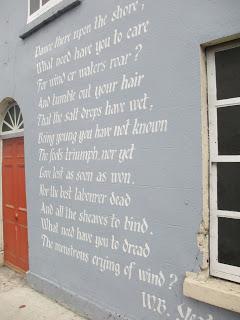 Dance there upon the shore;
What need have you to care
For wind or waters roar?
And tumble out your hair
That the salt drops have wet;
Being young you have not known
The fool's triumph, nor yet
Love lost as soon as won.
Nor the best labourer dead
And all the sheaves to bind.
What need have you to dread
The monstrous crying of wind?
W.B.